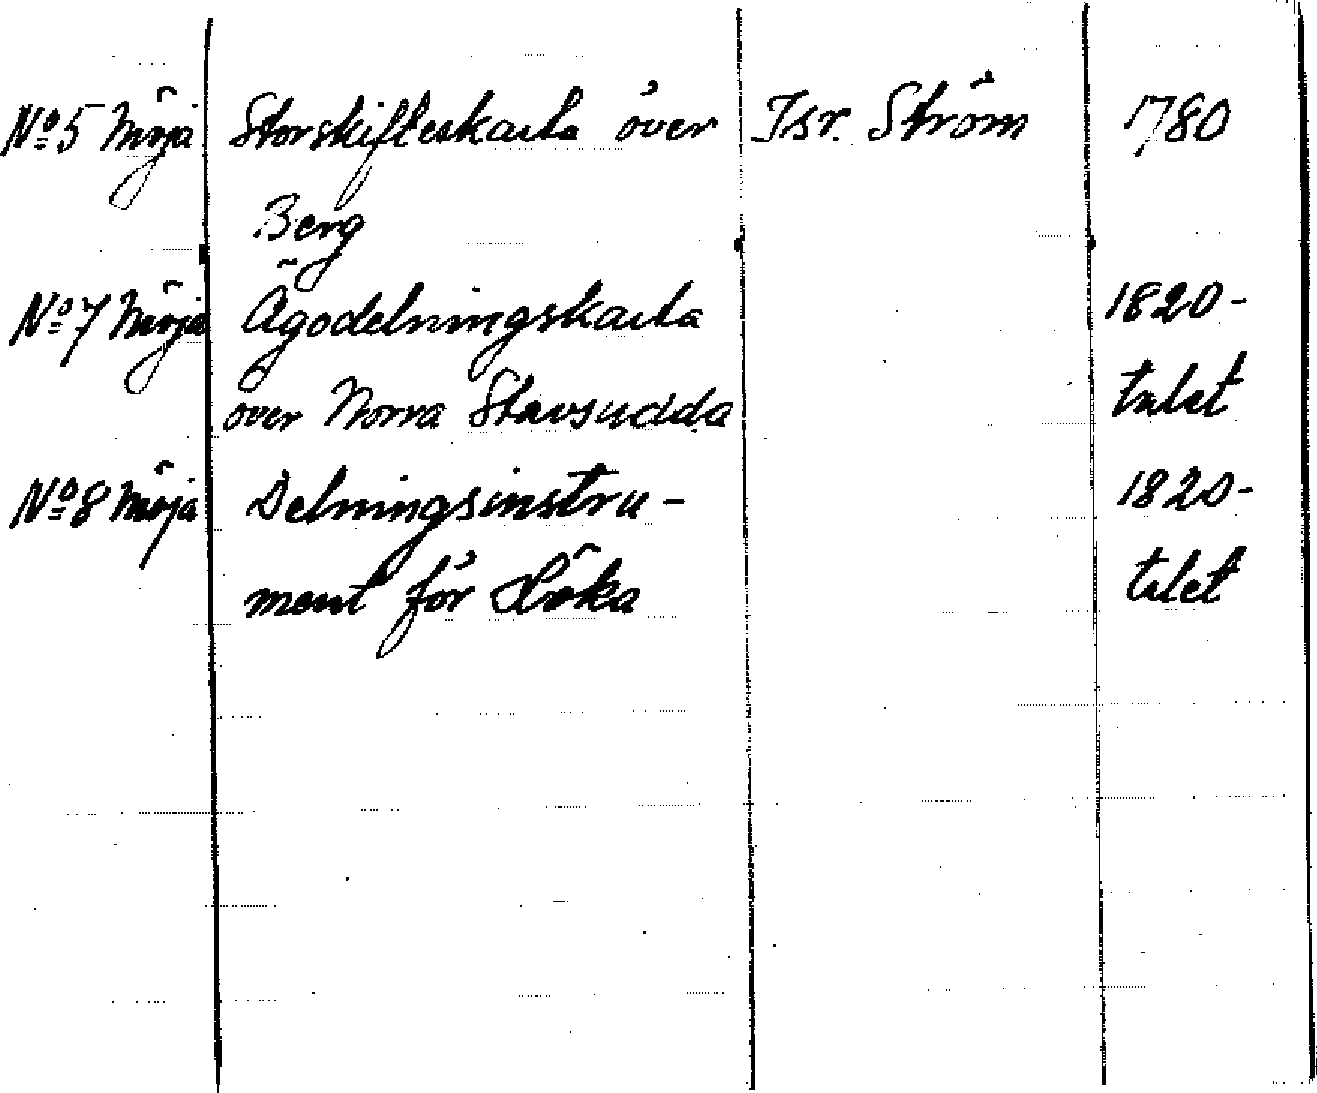 Nº 5 Möja Storskifteskarta över Isr. Ström 1780
Berg
Nº 7 Möja Ägodelningskarta 1820-
över Norra Stavsudda talet
Nº 8 Möja Delningsinstru- 1820-
ment för Löka talet